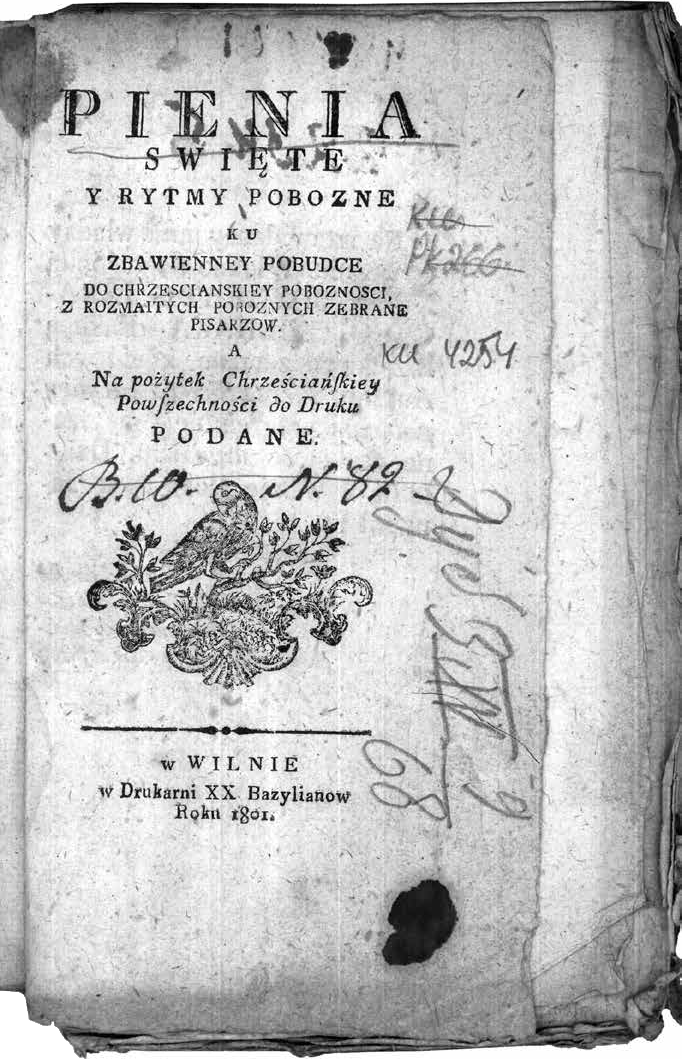 PIENIA
SWIĘTE
Y RYTMY POBOZNE
KU
ZBAWIENNEY POBUDCE
DO CHRZESCIANSKIEY POBOZNOSCI,
Z ROZMAITYCH POBOZNYCH ZEBRANE
PISARZOW.
A
Na pożytek Chrześciańſkiey
Powſzechności do Druku
PODANE.
KU 4254
B.10. N. 82
68
w WILNIE
w Drukarni XX. Bazylianow
Roku 1801.